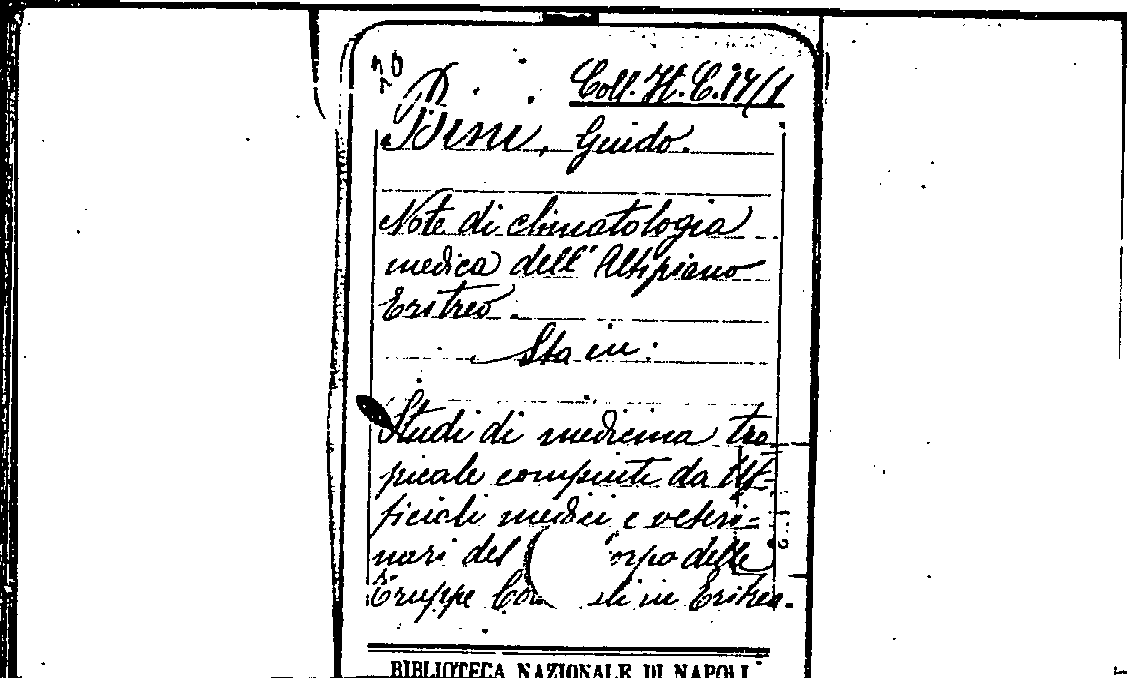 20
Coll. H. C. 17/1
Bini, Guido.
Note di climatologia
medica dell'Altipiano
Eritreo.
Sta in:
Studi di medicina tro
picale compiuti da Uf=
ficiali medici e veteri=
nari del orpo delle
Truppe Co li in Eritrea.
BIBLIOTECA NAZIONALE DI NAPOLI